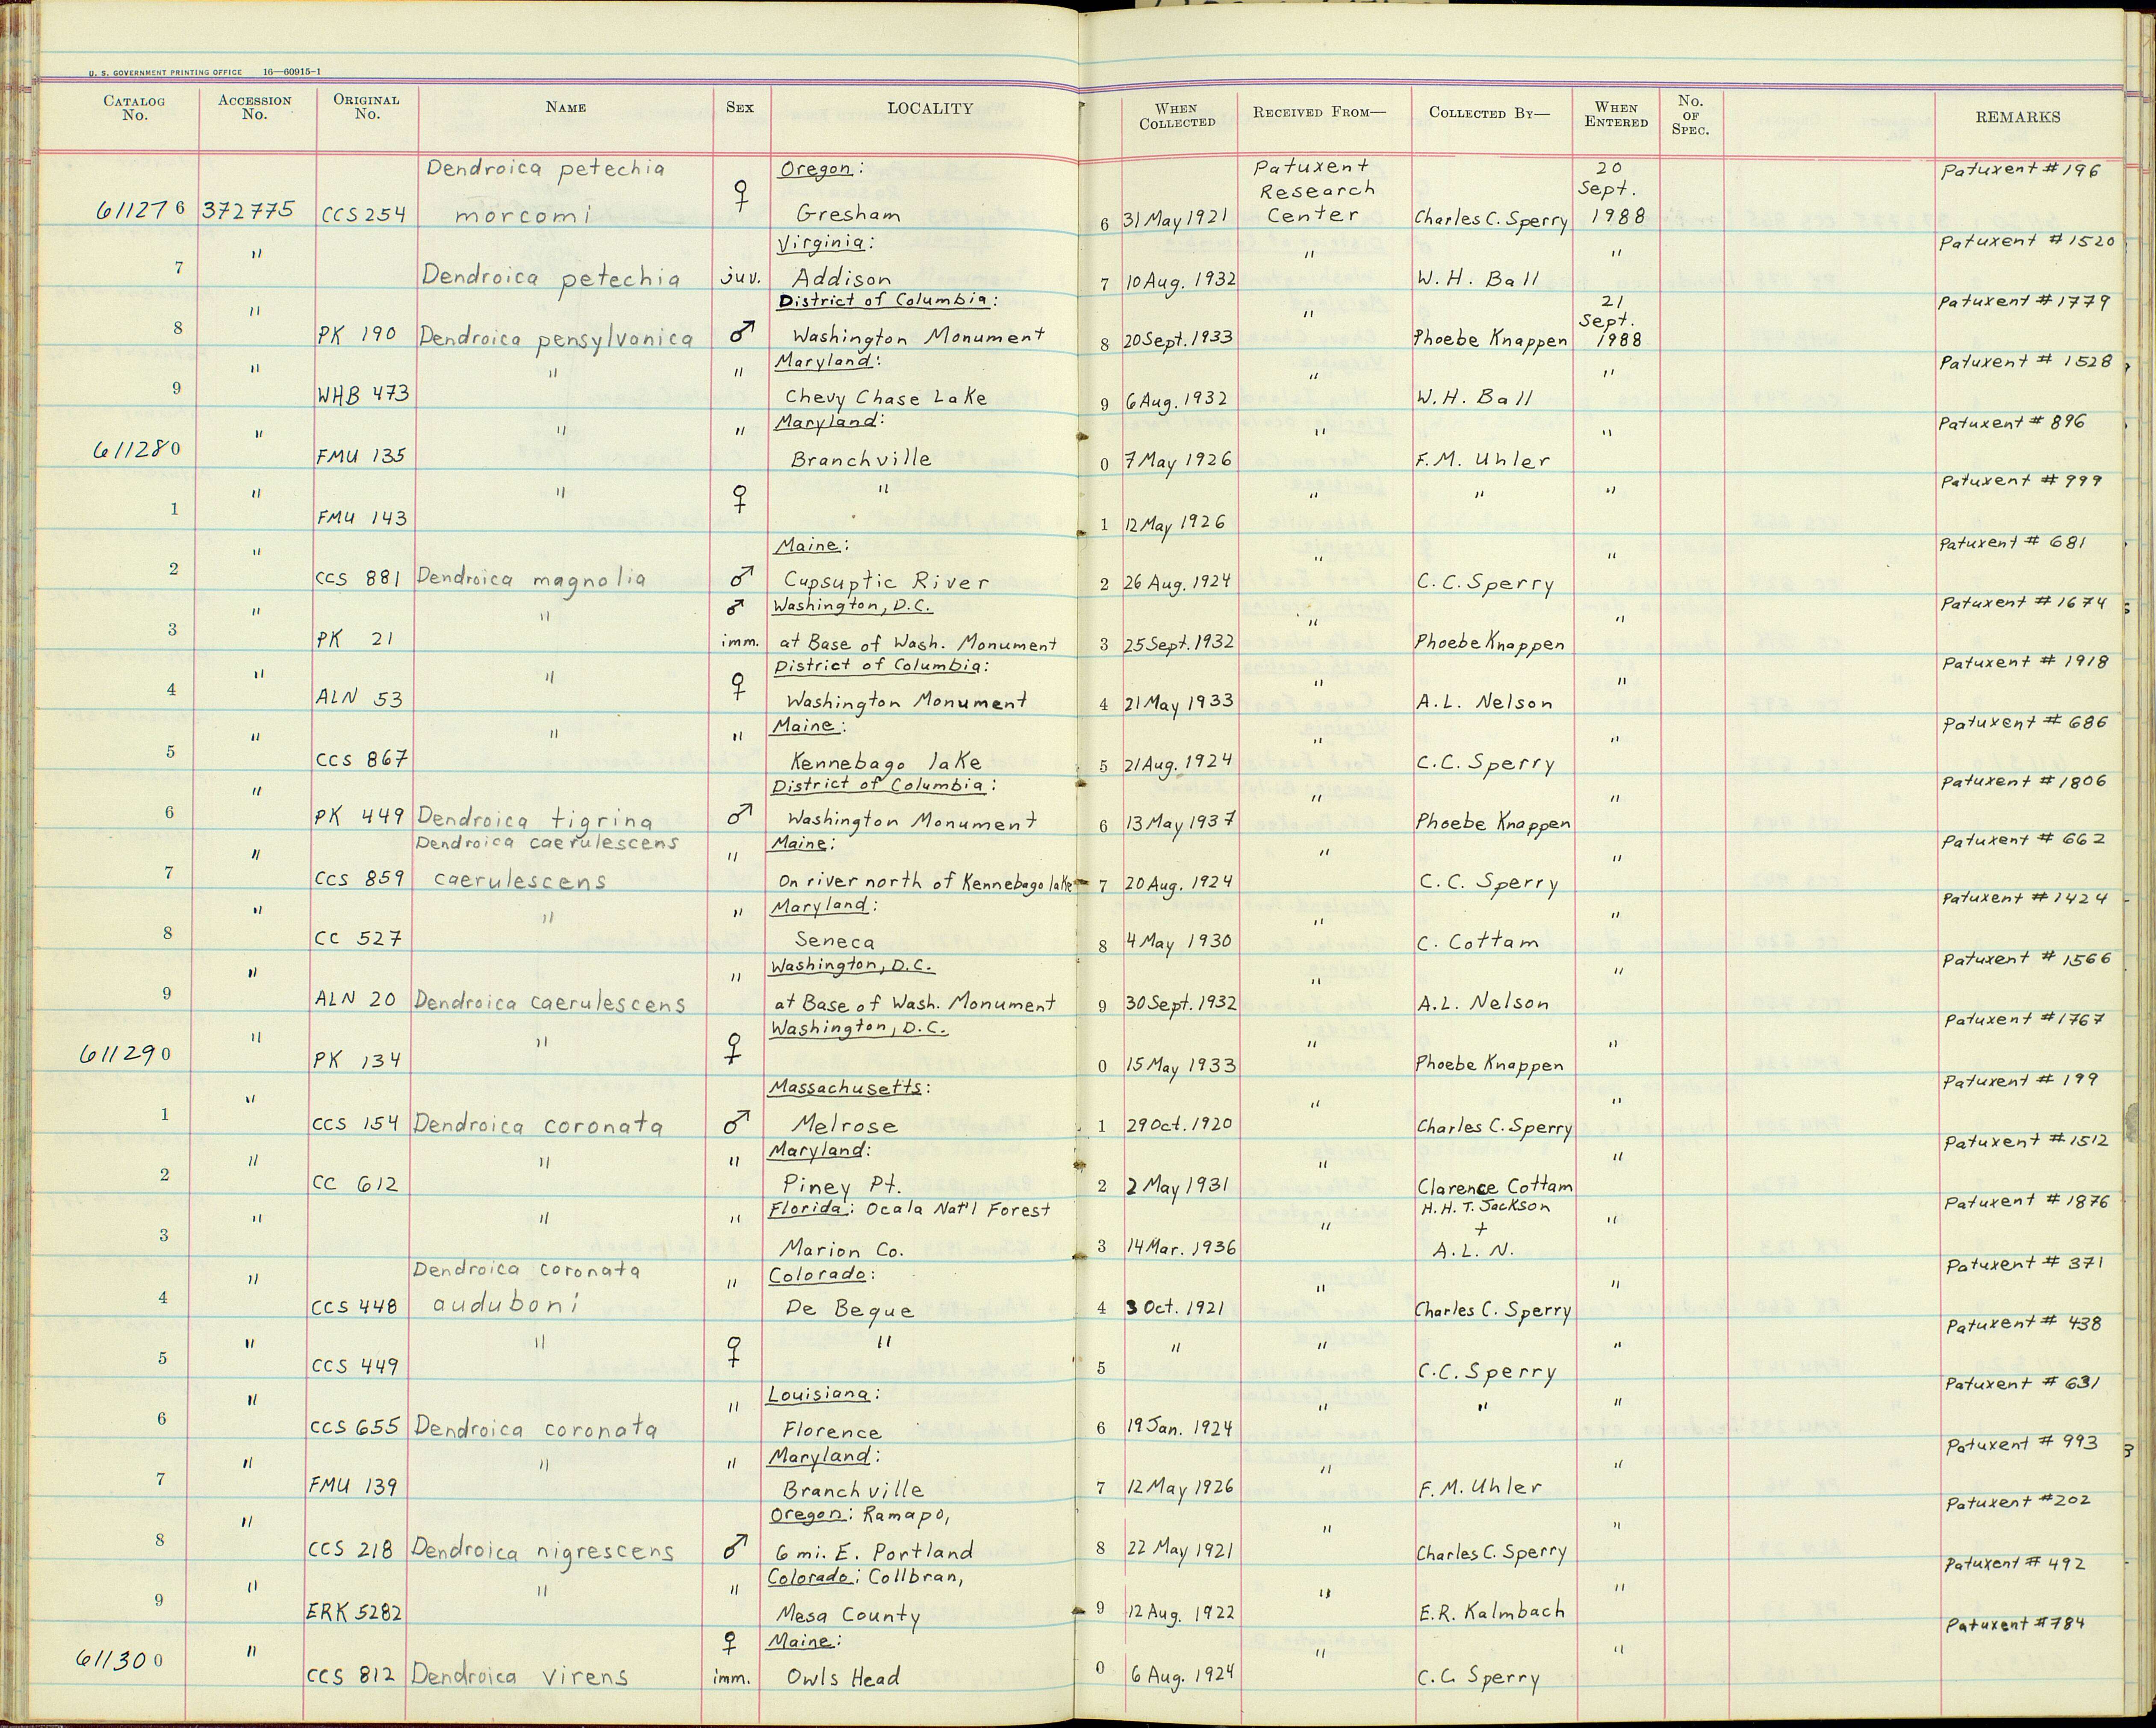 U. S. GOVERNMENT PRINTING OFFICE 16—60915-1
CATALOG No. ACCESSION No. ORIGINAL No. NAME SEX LOCALITY WHEN COLLECTED RECEIVED FROM— COLLECTED BY— WHEN ENTERED No. OF SPEC. REMARKS
Dendroica petechia Oregon: Patuxent Research 20 Sept. Patuxent #196
611276 372775 CCS 254 morcomi ♀ Gresham 6 31 May 1921 Center Charles C. Sperry 1988
" Virginia: " " Patuxent #1520
7 Dendroica petechia juv. Addison 7 10 Aug. 1932 W. H. Ball
" District of Columbia: " 21 Sept. Patuxent #1779
8 PK 190 Dendroica pensylvanica ♂ Washington Monument 8 20 Sept. 1933 Phoebe Knappen 1988
" " " Maryland: " " Patuxent # 1528
9 WHB 473 Chevy Chase Lake 9 6 Aug. 1932 W. H. Ball
" " " Maryland: " " Patuxent # 896
611280 FMU 135 Branchville 0 7 May 1926 F. M. Uhler
" " ♀ " " " " Patuxent # 999
1 FMU 143 1 12 May 1926
" Maine: " " Patuxent # 681
2 CCS 881 Dendroica magnolia ♂ Cupsuptic River 2 26 Aug. 1924 C. C. Sperry
" " ♂ Washington, D.C. " " Patuxent # 1674
3 PK 21 imm. at Base of Wash. Monument 3 25 Sept. 1932 Phoebe Knappen
" " ♀ District of Columbia: " " Patuxent # 1918
4 ALN 53 Washington Monument 4 21 May 1933 A. L. Nelson
" " " Maine: " " Patuxent # 686
5 CCS 867 Kennebago lake 5 21 Aug. 1924 C. C. Sperry
" District of Columbia: " " Patuxent # 1806
6 PK 449 Dendroica tigrina ♂ Washington Monument 6 13 May 1937 Phoebe Knappen
" Dendroica caerulescens " Maine: " " Patuxent # 662
7 CCS 859 caerulescens On river north of Kennebago lake 7 20 Aug. 1924 C. C. Sperry
" " " Maryland: " " Patuxent #1424
8 CC 527 Seneca 8 4 May 1930 C. Cottam
" " Washington, D.C. " " Patuxent # 1566
9 ALN 20 Dendroica caerulescens at Base of Wash. Monument 9 30 Sept. 1932 A. L. Nelson
" " ♀ Washington, D.C. " " Patuxent #1767
611290 PK 134 0 15 May 1933 Phoebe Knappen
" Massachusetts: " " Patuxent # 199
1 CCS 154 Dendroica coronata ♂ Melrose 1 29 Oct. 1920 Charles C. Sperry
" " " Maryland: " " Patuxent #1512
2 CC 612 Piney Pt. 2 2 May 1931 Clarence Cottam
" " " Florida: Ocala Nat'l Forest " H. H. T. Jackson + " Patuxent # 1876
3 Marion Co. 3 14 Mar. 1936 A. L. N.
" Dendroica coronata " Colorado: " " Patuxent # 371
4 CCS 448 auduboni De Beque 4 3 Oct. 1921 Charles C. Sperry
" " ♀ " " " " Patuxent # 438
5 CCS 449 5 C. C. Sperry
" " Louisiana: " " " Patuxent # 631
6 CCS 655 Dendroica coronata Florence 6 19 Jan. 1924
" " " Maryland: " " Patuxent # 993
7 FMU 139 Branchville 7 12 May 1926 F. M. Uhler
" Oregon: Ramapo, " " Patuxent #202
8 CCS 218 Dendroica nigrescens ♂ 6 mi. E. Portland 8 22 May 1921 Charles C. Sperry
" " " Colorado: Collbran, " " Patuxent # 492
9 ERK 5282 Mesa County 9 12 Aug. 1922 E. R. Kalmbach
" ♀ Maine: " " Patuxent #784
611300 CCS 812 Dendroica virens imm. Owls Head 0 6 Aug. 1924 C. C. Sperry